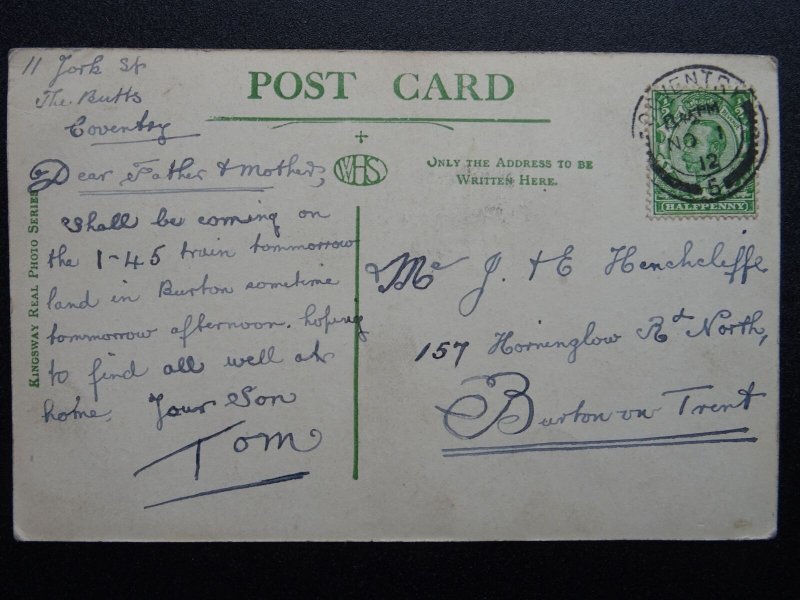 11 York St
The Butts
Coventry
POST CARD
Dear Father & Mother,
shall be coming on
the 1-45 train tommorrow
land in Burton sometime
tommorrow afternoon. hoping
to find all well at
home. Your Son
Tom
KINGSWAY REAL PHOTO SERIES
WHS
ONLY THE ADDRESS TO BE
WRITTEN HERE.
COVENTRY
NO 1
12
5
HALFPENNY
J. & E Henchcliffe
157 Horninglow Rd North,
Burton on Trent